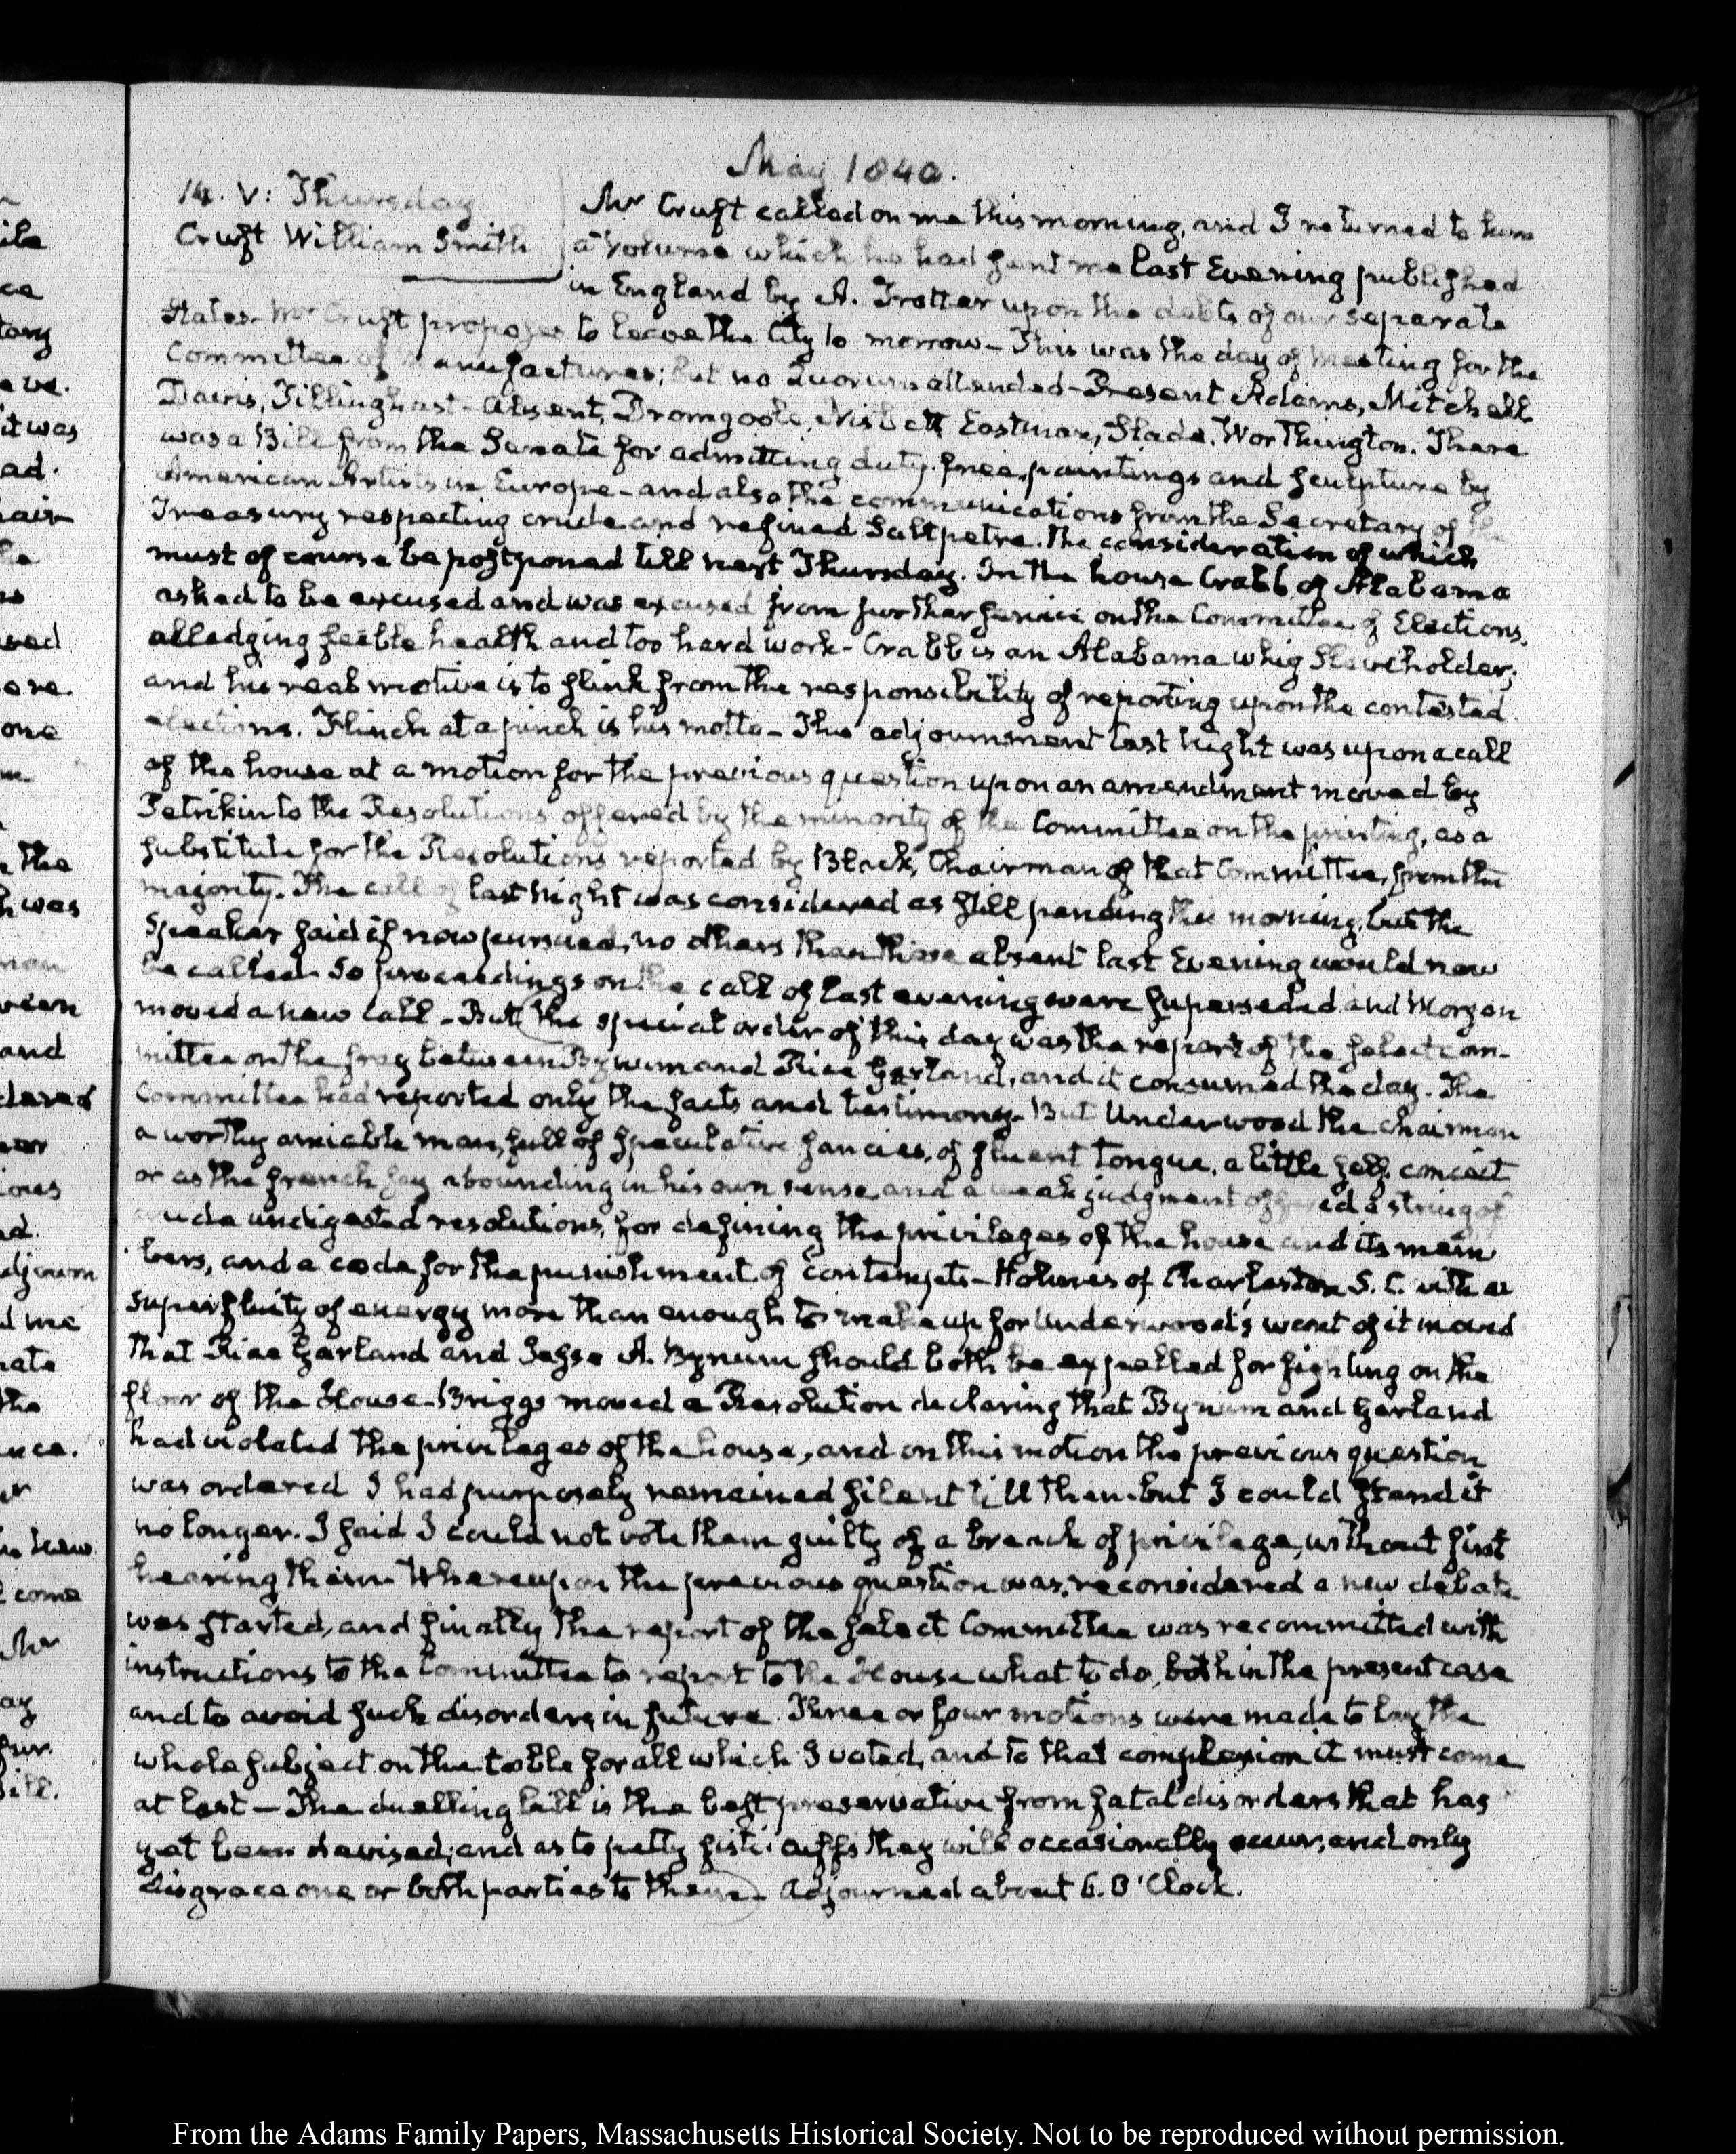 May 1840.
14. V: Thursday
Cruft William Smith
Mr Cruft called on me this morning, and I returned to him
a volume which he had sent me last Evening published
in England by A. Trotter upon the debts of our separate
States. Mr Cruft proposes to leave the City to morrow – This was the day of meeting for the
Committee of Manufactures; but no Quorum attended – Present Adams, Mitchell
Davis, Tillinghast – Absent, Dromgoole, Nisbett Eastman, Slade, Worthington. There
was a Bill from the Senate for admitting duty-free, paintings and sculpture by
American Artists in Europe – and also the communications from the Secretary of the
Treasury respecting crude and refined Saltpetre. The consideration of which
must of course be postponed till next Thursday. In the house Crabb of Alabama
asked to be excused and was excused from further service on the Committee of Elections,
alledging feeble health and too hard work – Crabb is an Alabama whig Slaveholder;
and his real motive is to slink from the responsibility of reporting upon the contested
elections. Flinch at a pinch is his motto – The adjournment last night was upon a call
of the house at a motion for the previous question upon an amendment moved by
Petrikin to the Resolutions offered by the minority of the Committee on the printing, as a
substitute for the Resolutions reported by Black, Chairman of that Committee, from the
majority. The call of last night was considered as still pending this morning, but the
Speaker said if now pursued, no others than those absent last Evening would now
be called. So proceedings on the call of last evening were superseded and Morgan
moved a new call – But (the special order of this day was the report of the select com-
mittee on the fray between Bynum and Rice Garland, and it consumed the day. The
Committee had reported only the facts and testimony. But Underwood the chairman
a worthy amiable man, full of speculative fancies, of fluent tongue, a little self conceit
or as the french say abounding in his own sense and a weak judgment offered a string of
crude undigested resolutions, for defining the privileges of the house and its mem
bers, and a code for the punishment of contempts – Holmes of Charleston S. C. with a
superfluity of energy more than enough to make up for Underwood's want of it moved
that Rice Garland and Jesse A. Bynum should both be expelled for fighting on the
floor of the House – Briggs moved a Resolution declaring that Bynum and Garland
had violated the privileges of the house, and on this motion the previous question
was ordered I had purposely remained silent till then – but I could stand it
no longer. I said I could not vote them guilty of a breach of privilege, without first
hearing them. Whereupon the previous question was reconsidered a new debate
was started, and finally the report of the select Committee was recommitted with
instructions to the Committee to report to the House what to do, both in the present case
and to avoid such disorders in future. Three or four motions were made to lay the
whole subject on the table for all which I voted, and to that complexion it must come
at last – The duelling bill is the best preservative from fatal disorders that has
yet been devised; and as to petty fisticuffs they will occasionally occur, and only
disgrace one or both parties to them) – Adjourned about 6. O'Clock.
From the Adams Family Papers, Massachusetts Historical Society. Not to be reproduced without permission.